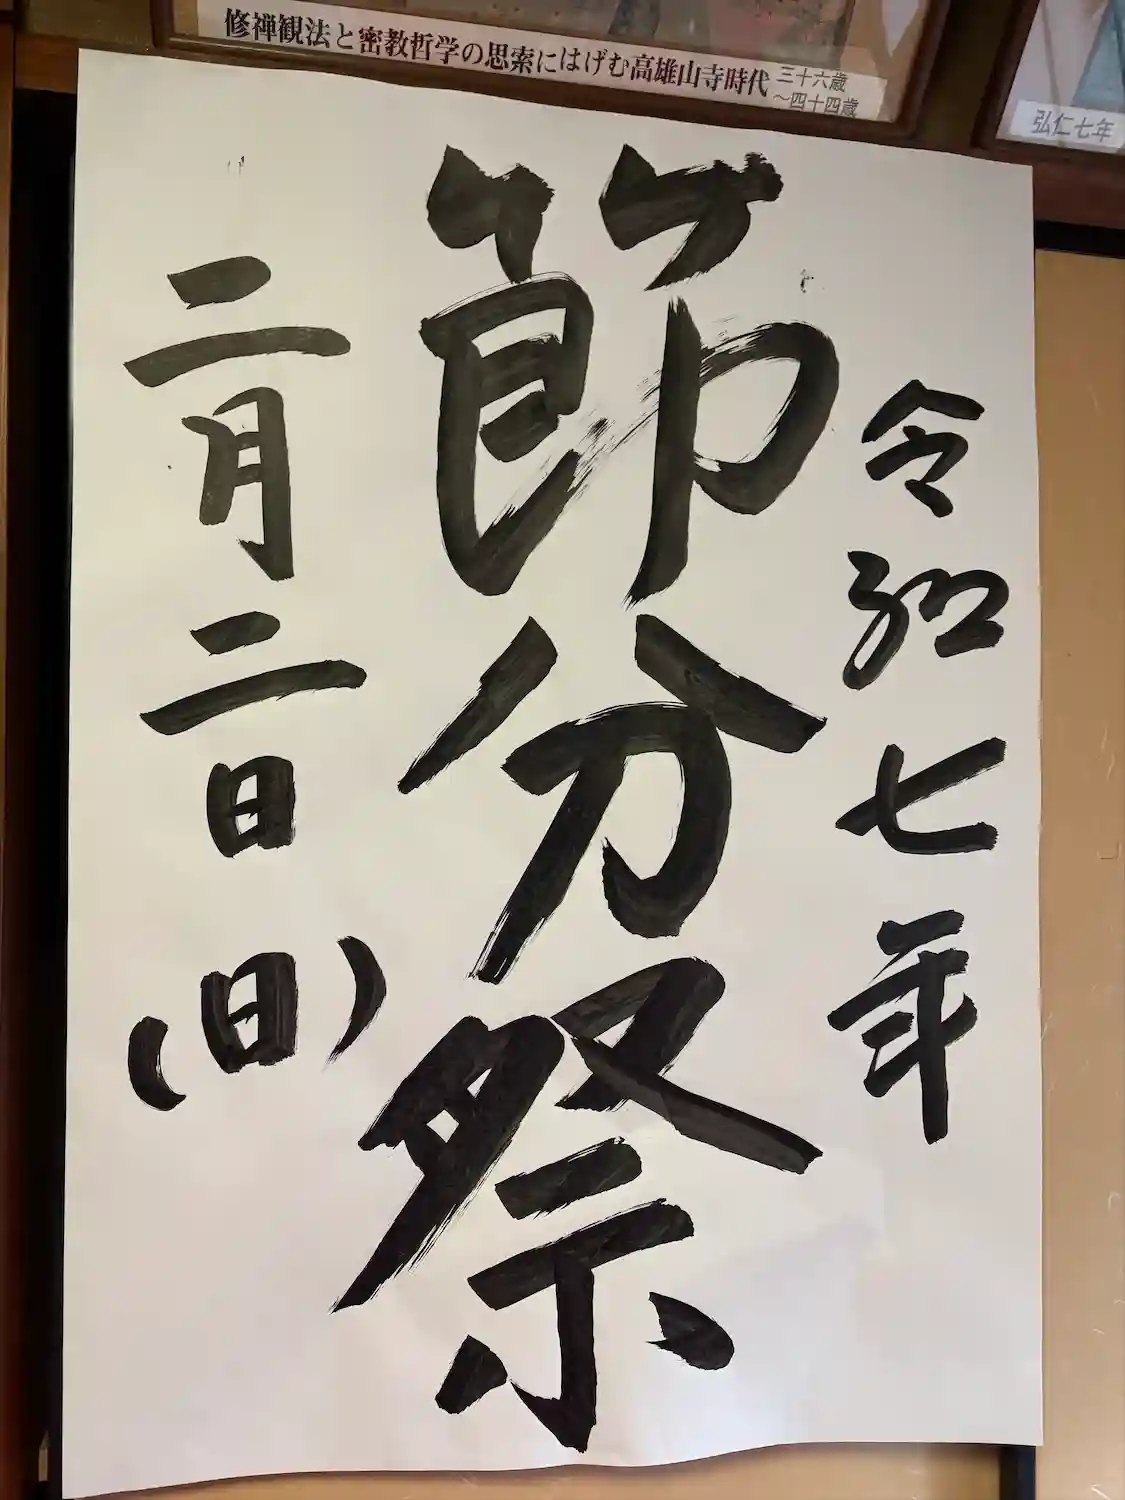 修禅観法と密教哲学の思索にはげむ高雄山寺時代
三十六歳
～四十四歳
弘仁七年
令和七年
節分祭
二月二日(日)